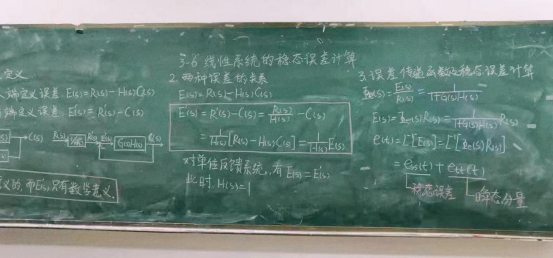 3-6 线性系统的稳态误差计算
定义
端定义误差 E(s)=R(s)-H(s)C(s)
端定义误差: E'(s)=R'(s)-C(s)
C(s)
R(s) R'(s) E'(s) G(s)H(s) C(s)
义的, 而E'(s)只有数学意义.
2. 两种误差的关系
E(s)=R(s)-H(s)C(s)
E'(s)=R'(s)-C(s)=R(s)/H(s)-C(s)
=1/H(s)[R(s)-H(s)C(s)]=1/H(s)E(s)
对单位反馈系统, 有 E(s)=E'(s)
此时, H(s)=1
3. 误差传递函数及稳态误差计算
Φe(s)=E(s)/R(s)=1/1+G(s)H(s)
E(s)=Φe(s)R(s)=1/1+G(s)H(s)R(s)
e(t)=L⁻¹[E(s)]=L⁻¹[Φe(s)R(s)]
=ess(t)+ets(t)
稳态误差 瞬态分量